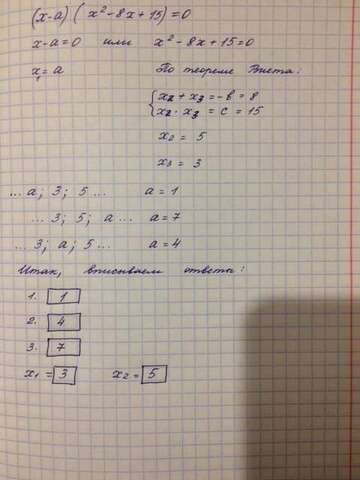 (x-a)(x²-8x+15)=0
x-a=0 или x²-8x+15=0
x₁=a По теореме Виета:
{x₂+x₃=-b=8
x₂·x₃=c=15
x₂=5
x₃=3
...a; 3; 5... a=1
...3; 5; a... a=7
...3; a; 5... a=4
Итак, вписываем ответы:
1. 1
2. 4
3. 7
x₁=3 x₂=5